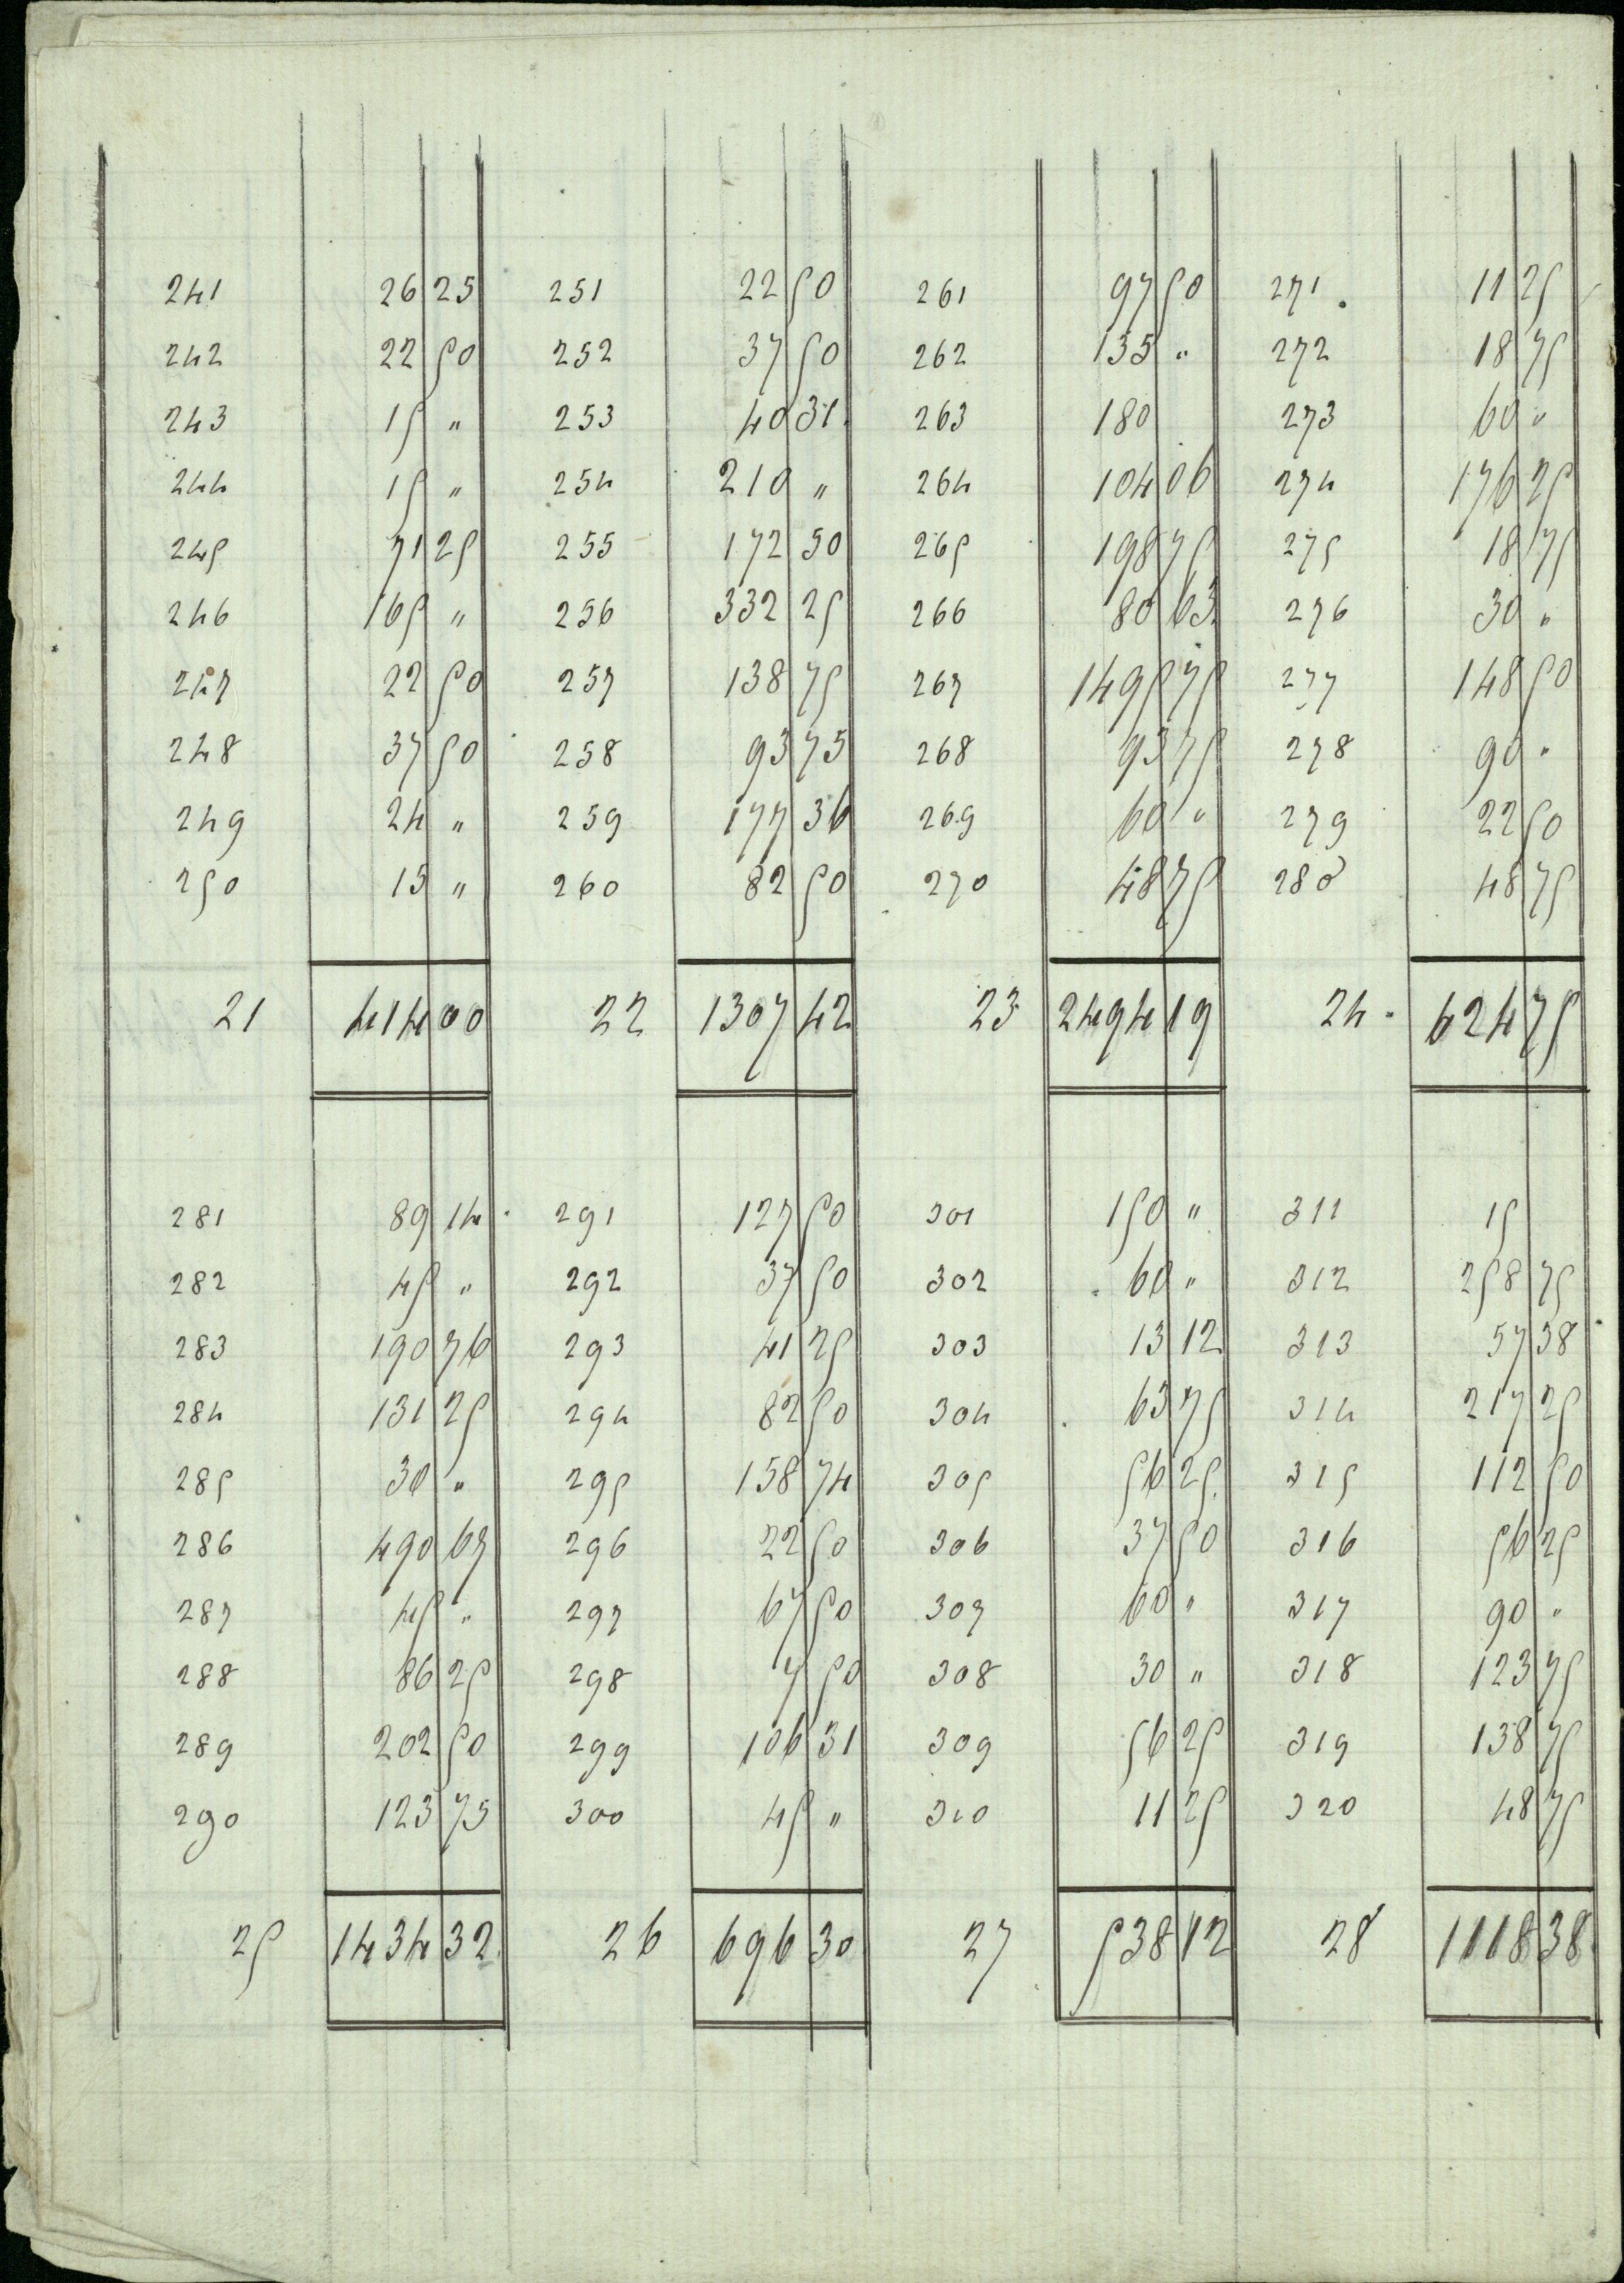 241 26 25 251 22 50 261 97 50 271 11 25
242 22 50 252 37 50 262 135 " 272 18 75
243 15 " 253 40 31 263 180 273 60 "
244 15 " 254 210 " 264 104 06 274 176 25
245 71 25 255 172 50 265 198 75 275 18 75
246 165 " 256 332 25 266 80 63 276 30 "
247 22 50 257 138 75 267 1495 75 277 148 50
248 37 50 258 93 75 268 93 75 278 90 "
249 24 " 259 177 36 269 60 " 279 22 50
250 15 " 260 82 50 270 48 75 280 48 75
21 414 00 22 1307 42 23 2494 19 24 624 75
281 89 14 291 127 50 301 150 " 311 15
282 45 " 292 37 50 302 60 " 312 258 75
283 190 76 293 41 25 303 13 12 313 57 38
284 131 25 294 82 50 304 63 75 314 217 25
285 30 " 295 158 74 305 56 25 315 112 50
286 490 67 296 22 50 306 37 50 316 56 25
287 45 " 297 67 50 307 60 " 317 90 "
288 86 25 298 7 50 308 30 " 318 123 75
289 202 50 299 106 31 309 56 25 319 138 75
290 123 75 300 45 " 310 11 25 320 48 75
25 1434 32 26 696 30 27 538 12 28 1118 38